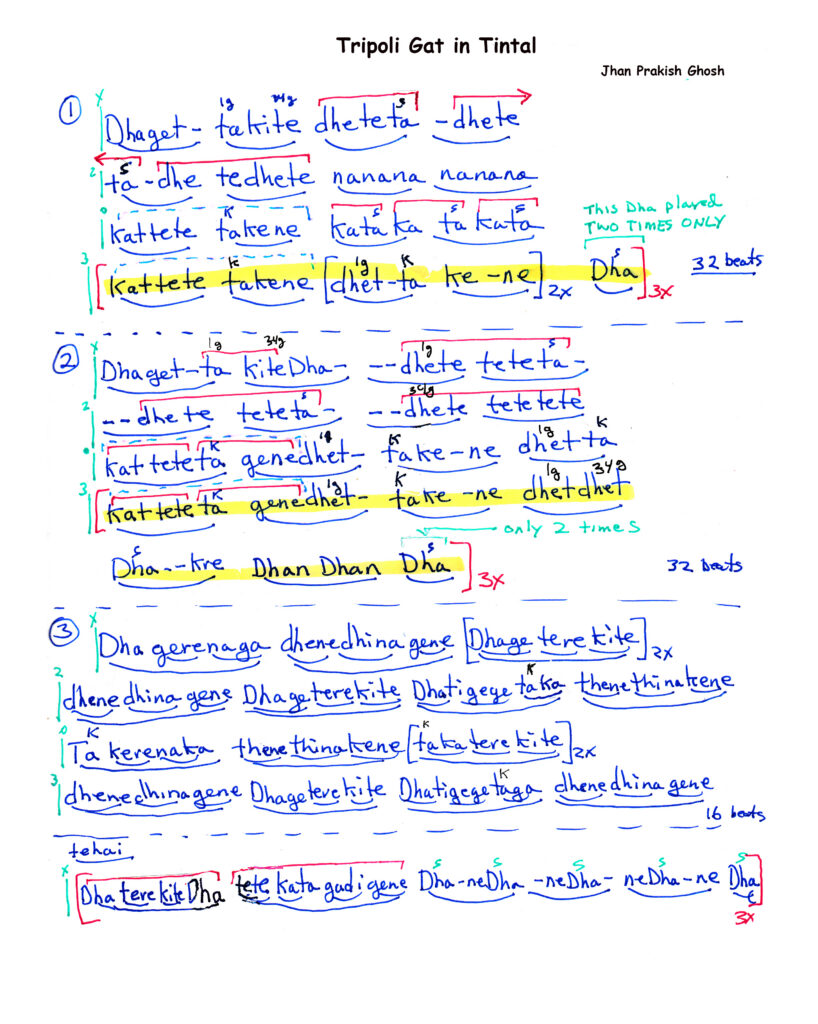 Tripoli Gat in Tintal
Jhan Prakish Ghosh
1g 34g s
① x Dhaget- takite dheteta -dhete
s
2 ta-dhe tedhete nanana nanana
K s s s
0 kattete takene kata ka ta kata
This Dha played
TWO TIMES ONLY
k 1g K s
3 [kattete takene [dhet-ta ke-ne]2x Dha]3x 32 beats
1g 34g 1g s
② x Dhaget-ta kiteDha- --dhete teteta-
s 34g
2 --dhete teteta- --dhete tetetete
K 1g K 1g K
0 katteteta genedhet- take-ne dhet-ta
K 1g K 1g 34g
3 [katteteta genedhet- take-ne dhetdhet
only 2 times
s s
Dha--kre Dhan Dhan Dha]3x 32 beats
③ x Dha gerenaga dhenedhina gene [Dhage terekite]2x
K
2 dhenedhina gene Dhageterekite Dhatigege taka thenethinakene
K K
0 Ta kerenaka thenethinakene [takaterekite]2x
K
3 dhenedhinagene Dhageterekite Dhatigegetaga dhenedhina gene
16 beats
tehai
s s s s s
x [Dha terekite Dha tete kata gadi gene Dha-neDha -neDha- neDha-ne Dha]
3x